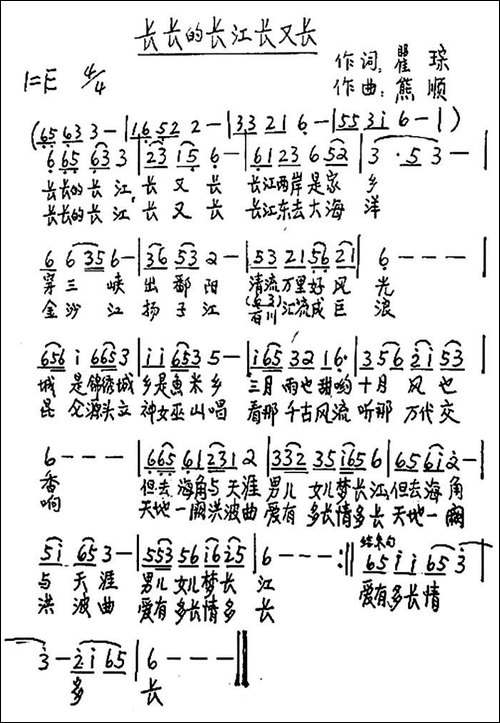 长长的长江长又长
作词:瞿琮
1=E 4/4
作曲:熊顺
(65 63 3 - | 16 52 2 - | 33 21 6 - | 55 3i 6 - | )
6 65 63 3 | 23 15 6 - | 61 23 6 52 | 3 · 5 3 - |
长长的长江,长又长 长江两岸是家乡
长长的长江,长又长 长江东去大海洋
6 6 35 6 - | 36 53 2 - | 53 21 56 21 | 6 - - - |
穿三峡出鄱阳 清流万里好风光
金沙江扬子江 百川汇流成巨浪
656 i 665 3 | i i 653 5 - | i65 32 21 6· | 356 2i 53 |
城是锦绣城 乡是鱼米乡 三月雨也甜哟十月风也
昆仑源头立 神女巫山唱 看那千古风流听那万代交
6 - - - | 665 61 231 2 | 332 35 i65 6 | 65 6i 2 - |
香 但去海角与天涯 男儿女儿梦长江,但去海角
响 天地一阙洪波曲 爱有多长情多长 天地一阙
5i 65 3 - | 553 56 i6 25 | 6 - - - :|| 65 i i 65 3 |
结束句
与天涯 男儿女儿梦长江 爱有多长情
洪波曲 爱有多长情多长
3 - 2i 65 | 6 - - - ||
多长